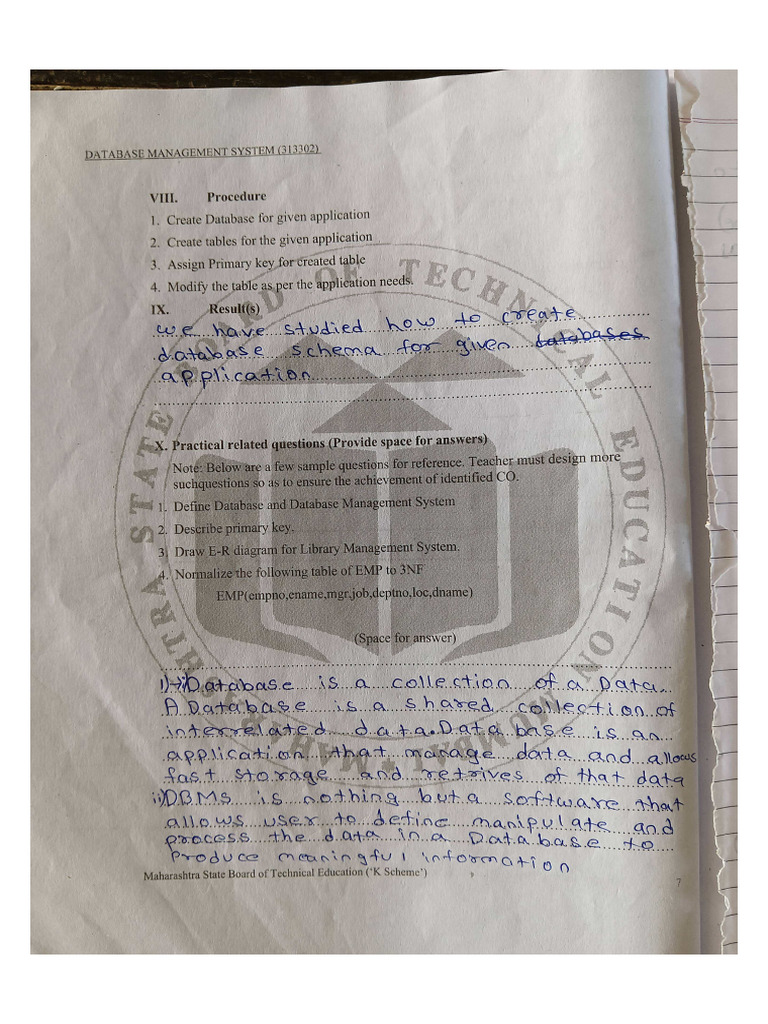 DATABASE MANAGEMENT SYSTEM (313302)
VIII. Procedure
1. Create Database for given application
2. Create tables for the given application
3. Assign Primary key for created table
4. Modify the table as per the application needs.
IX. Result(s)
we have studied how to create
database schema for given databases
application
X. Practical related questions (Provide space for answers)
Note: Below are a few sample questions for reference. Teacher must design more
suchquestions so as to ensure the achievement of identified CO.
1. Define Database and Database Management System
2. Describe primary key.
3. Draw E-R diagram for Library Management System.
4. Normalize the following table of EMP to 3NF
EMP(empno,ename,mgr,job,deptno,loc,dname)
(Space for answer)
1)→i)Database is a collection of a Data.
A Database is a shared collection of
interrelated data.Data base is an
application that manage data and allows
fast storage and retrives of that data
ii)DBMs is nothing but a software that
allows user to define manipulate and
process the data in a Data base to
produce meaningful information
Maharashtra State Board of Technical Education ('K Scheme')
7
MAHARASHTRA STATE BOARD OF TECHNICAL EDUCATION MUMBAI